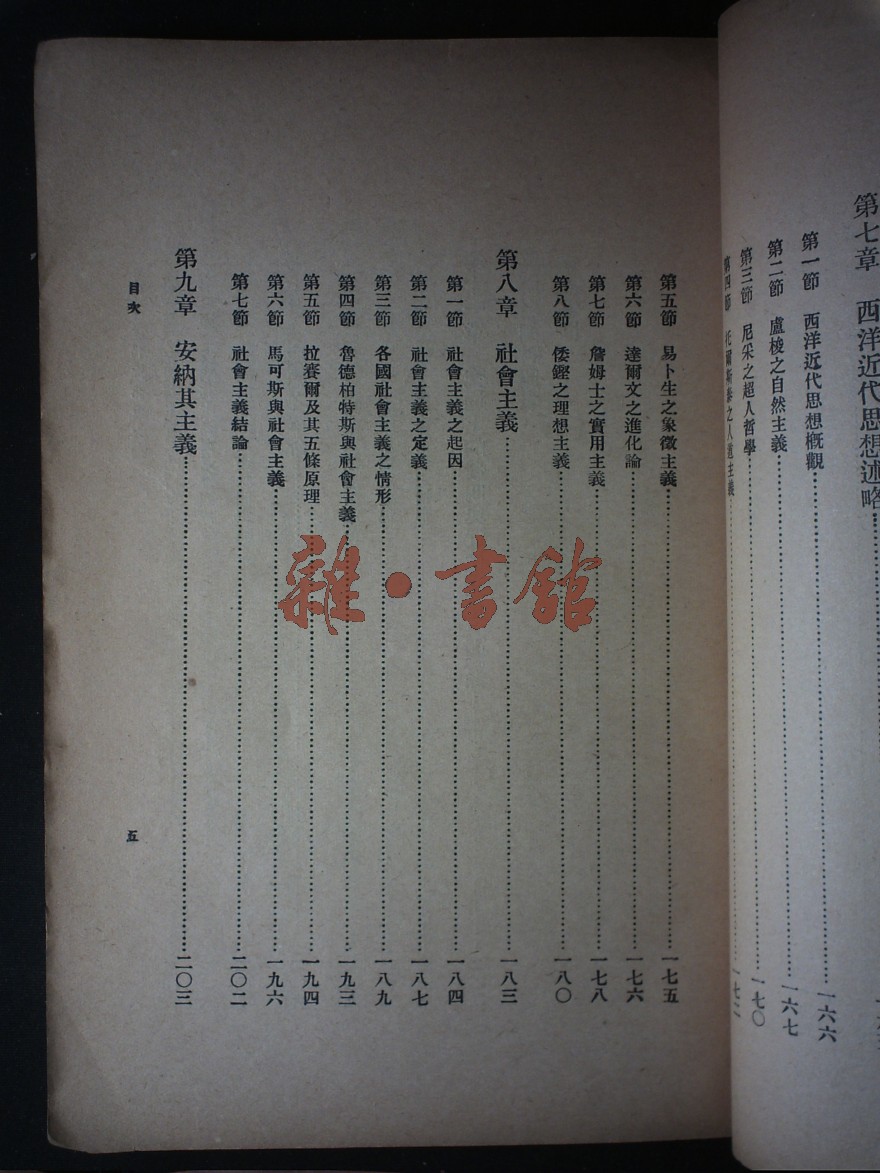 第七章 西洋近代思想述略
第一節 西洋近代思想概觀 一六六
第二節 盧梭之自然主義 一六七
第三節 尼采之超人哲學 一七〇
第四節 托爾斯泰之人道主義 一七二
第五節 易卜生之象徵主義 一七五
第六節 達爾文之進化論 一七六
第七節 詹姆士之實用主義 一七八
第八節 倭鏗之理想主義 一八〇
第八章 社會主義 一八三
第一節 社會主義之起因 一八四
第二節 社會主義之定義 一八七
第三節 各國社會主義之情形 一八九
第四節 魯德柏特斯與社會主義 一九三
第五節 拉賽爾及其五條原理 一九四
第六節 馬可斯與社會主義 一九六
第七節 社會主義結論 二〇二
第九章 安納其主義 二〇三
目次 五
雜·書館